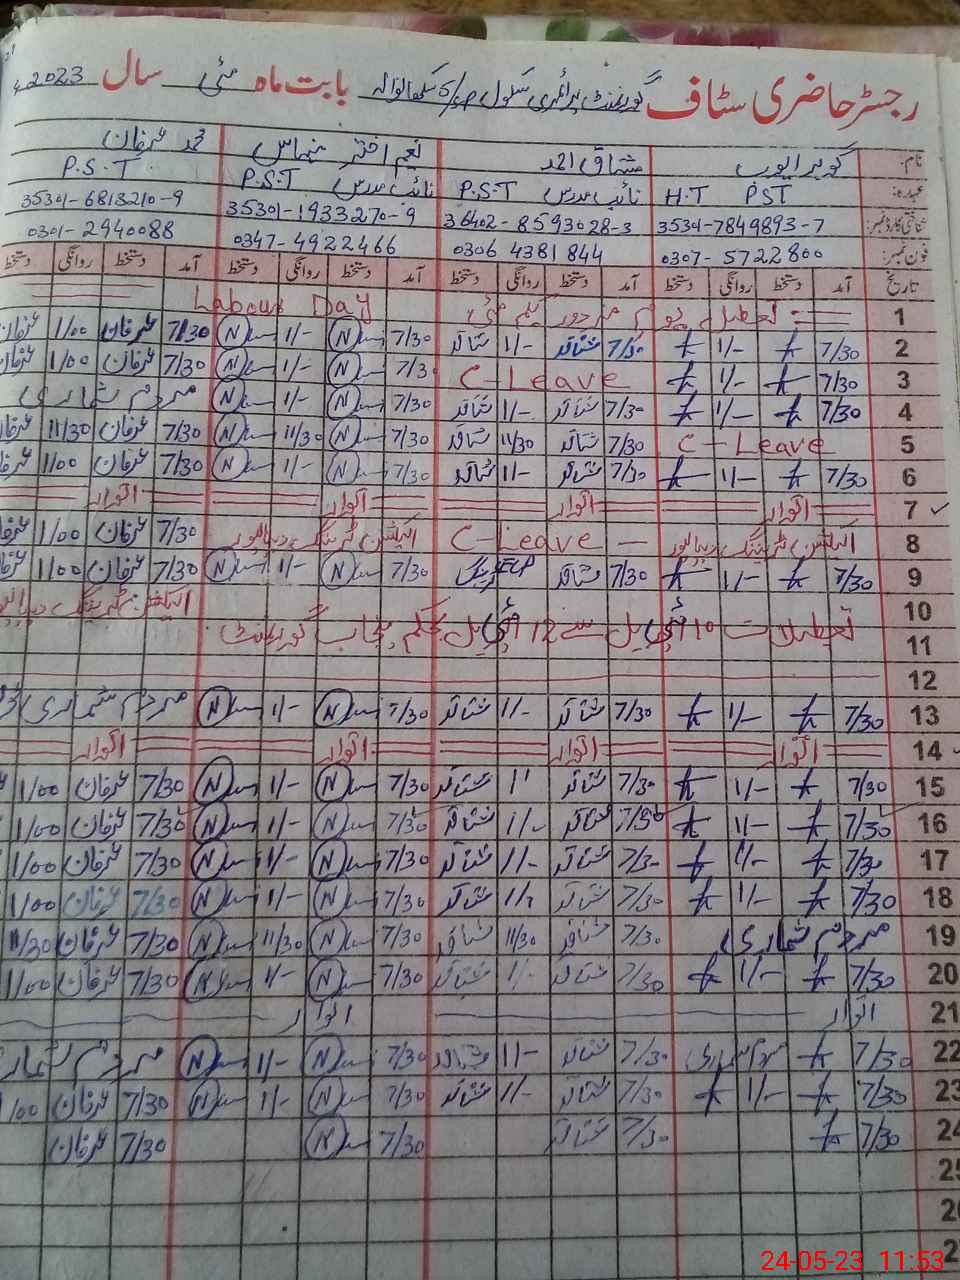 رجسٹر حاضری سٹاف گورنمنٹ پرائمری سکول بابت ماہ مئی سال 2023ء
نام: گوہر ایوب مشتاق احمد نعیم اختر محمد عرفان
عہدہ: PST H.T نائب مدرس P.S.T نائب مدرس P.S.T P.S.T
شناختی کارڈ نمبر: 35301-7849893-7 36402-8593028-3 35301-1933270-9 35301-6813210-9
فون نمبر: 0307-5722800 0306 4381844 0347-4922466 0301-2940088
تاریخ آمد دستخط روانگی دستخط آمد دستخط روانگی دستخط آمد دستخط روانگی دستخط آمد دستخط روانگی دستخط
1 تعطیل یوم مزدور یکم مئی Labour Day
2 7/30 1/- 7/30 مشتاق 1/- مشتاق 7/30 N 1/- N 7/30 عرفان 1/00 عرفان
3 7/30 1/- C-Leave 7/30 N 1/- N 7/30 عرفان 1/00 عرفان
4 7/30 1/- 7/30 مشتاق 1/- مشتاق 7/30 N 1/- N مردم شماری
5 C-Leave 7/30 مشتاق 11/30 مشتاق 7/30 N 11/30 N 7/30 عرفان 11/30 عرفان
6 7/30 1/- 7/30 مشتاق 1/- مشتاق 7/30 N 1/- N 7/30 عرفان 1/00 عرفان
7 اتوار اتوار اتوار اتوار
8 الیکشن ٹریننگ دیپالپور C-Leave الیکشن ٹریننگ دیپالپور 7/30 عرفان 1/00 عرفان
9 7/30 1/- 7/30 مشتاق 7/30 N 1/- N 7/30 عرفان 1/00 عرفان
10 الیکشن ٹریننگ
11 تعطیلات 10 سے 12 بحکم پنجاب گورنمنٹ
12
13 7/30 1/- 7/30 مشتاق 1/- مشتاق 7/30 N 1/- N مردم شماری
14 اتوار اتوار اتوار اتوار
15 7/30 1/- 7/30 مشتاق مشتاق 7/30 N 1/- N 7/30 عرفان 1/00
16 7/30 1/- 7/30 مشتاق 1/- مشتاق 7/30 N 1/- N 7/30 عرفان 1/00
17 7/30 1/- 7/30 مشتاق 1/- مشتاق 7/30 N 1/- N 7/30 عرفان 1/00
18 7/30 1/- 7/30 مشتاق 1/- مشتاق 7/30 N 1/- N 7/30 عرفان 1/00
19 مردم شماری 7/30 مشتاق 11/30 مشتاق 7/30 N 11/30 N 7/30 عرفان 11/30
20 7/30 1/- 7/30 مشتاق 1/- مشتاق 7/30 N 1/- N 7/30 عرفان 1/00
21 اتوار اتوار
22 7/30 مردم شماری 7/30 مشتاق 1/- مشتاق 7/30 N 1/- N مردم شماری
23 7/30 1/- 7/30 مشتاق 1/- مشتاق 7/30 N 1/- N 7/30 عرفان 1/00
24 7/30 7/30 مشتاق 7/30 N 7/30 عرفان
25
26
27
24-05-23 11:53